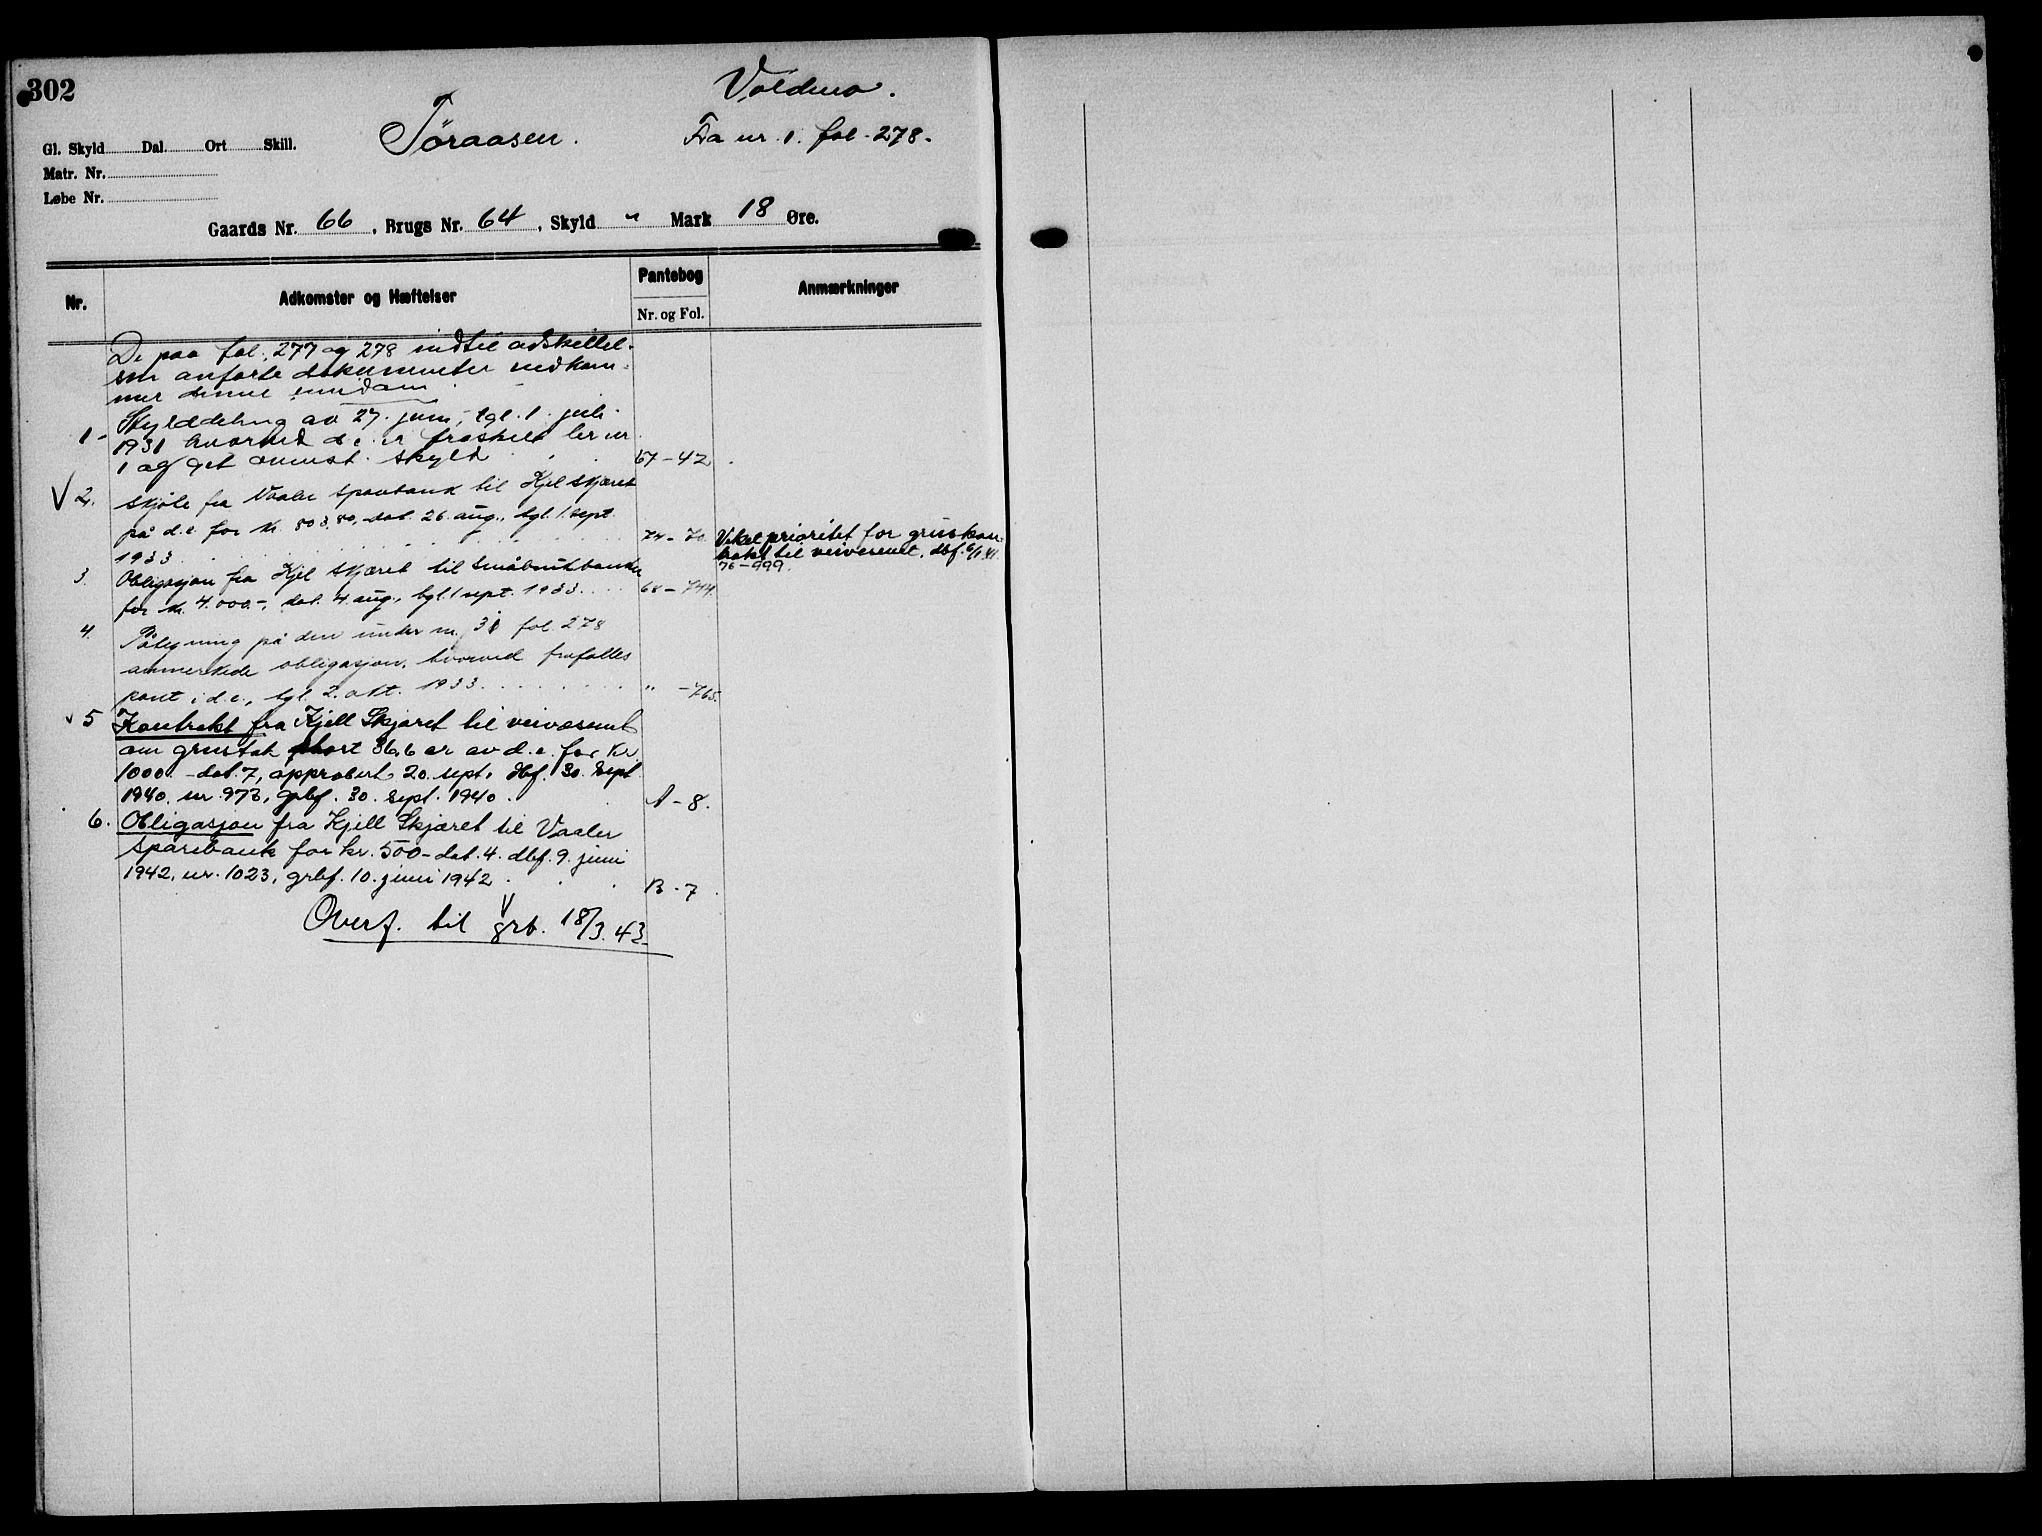 302
Voldmo.
Töraasen.
Fra nr. 1. fol. 278.
Gl. Skyld Dal. Ort Skill.
Matr. Nr.
Løbe Nr.
Gaards Nr. 66, Brugs Nr. 64, Skyld " Mark 18 Øre.
Nr.
Adkomster og Hæftelser
Pantebog
Nr. og Fol.
Anmærkninger
De paa fol. 277 og 278 indtil adskillel-
sen anførte dokumenter vedkom-
mer denne eiendom
1- Skylddeling av 27. juni, tgl. 1. juli
1931 hvorved d.e. er fraskilt br nr
1 og get ommst. skyld 67-42
V 2. Skjøte fra Vaaler sparebank til Kjel Skjæret
på d.e. for kr. 803,80, dat. 26. aug., tgl. 1. sept.
1933 74-70
3. Obligasjon fra Kjel Skjæret til Småbrukbanken
for kr. 4.000.-, dat. 4 aug., tgl. 1 sept. 1933 68-744.
Vikel prioritet for gruskon-
trakt til veivesenet, dbf. 6/1 41.
76-999.
4. Påtegning på den under nr. 31 fol. 278
anmerkede obligasjon, hvorved frafalles
pant i d.e., tgl. 2. okt. 1933 " -765.
v 5 Kontrakt fra Kjell Skjæret til veivæsenet
om grustak 36,6 ar av d.e. for kr
1000.- dat. 7, approbert 20. sept. dbf. 30. sept
1940. nr. 973, grbf. 30. sept. 1940. A-8.
6. Obligasjon fra Kjell Skjæret til Vaaler
sparebank for kr. 500- dat. 4. dbf. 9. juni
1942, nr. 1023, grbf. 10. juni 1942 B-7
Overf. til grb. 18/3. 43